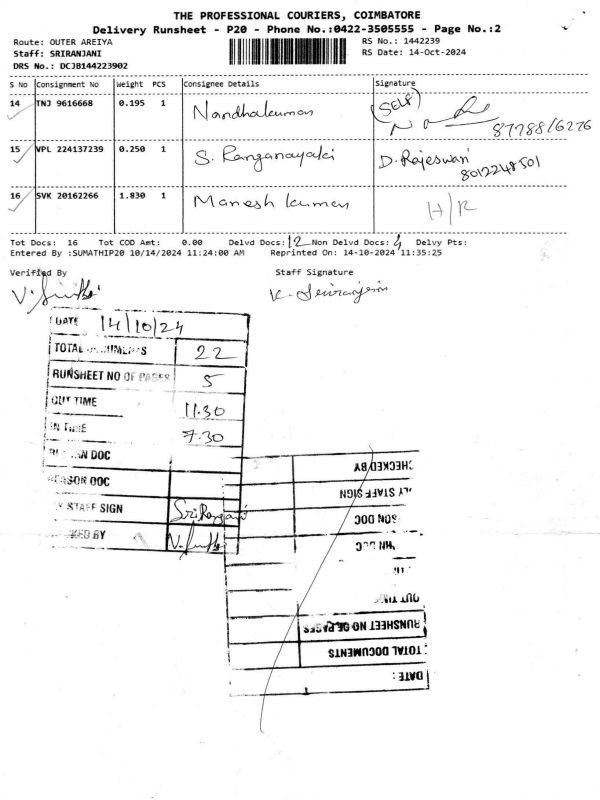 THE PROFESSIONAL COURIERS, COIMBATORE
Delivery Runsheet - P20 - Phone No.:0422-3505555 - Page No.:2
Route: OUTER AREIYA RS No.: 1442239
Staff: SRIRANJANI RS Date: 14-Oct-2024
DRS No.: DCJB144223902
S No Consignment No Weight PCS Consignee Details Signature
14 TNJ 9616668 0.195 1 Nandhakumar (SELF)
87788/6276
15 VPL 224137239 0.250 1 S. Ranganayaki D. Rajeswari
8012248501
16 SVK 20162266 1.830 1 Manesh kumar H/R
Tot Docs: 16 Tot COD Amt: 0.00 Delvd Docs: 12 Non Delvd Docs: 4 Delvy Pts:
Entered By :SUMATHIP20 10/14/2024 11:24:00 AM Reprinted On: 14-10-2024 11:35:25
Verified By Staff Signature
DATE 14/10/24
TOTAL 22
RUNSHEET NO OF PAGES 5
OUT TIME 11.30
IN TIME 7.30
DOC
DOC
STAFF SIGN
BY
DATE :
TOTAL DOCUMENTS
RUNSHEET NO OF PAGES
OUT
DOC
DOC
STAFF SIGN
CHECKED BY